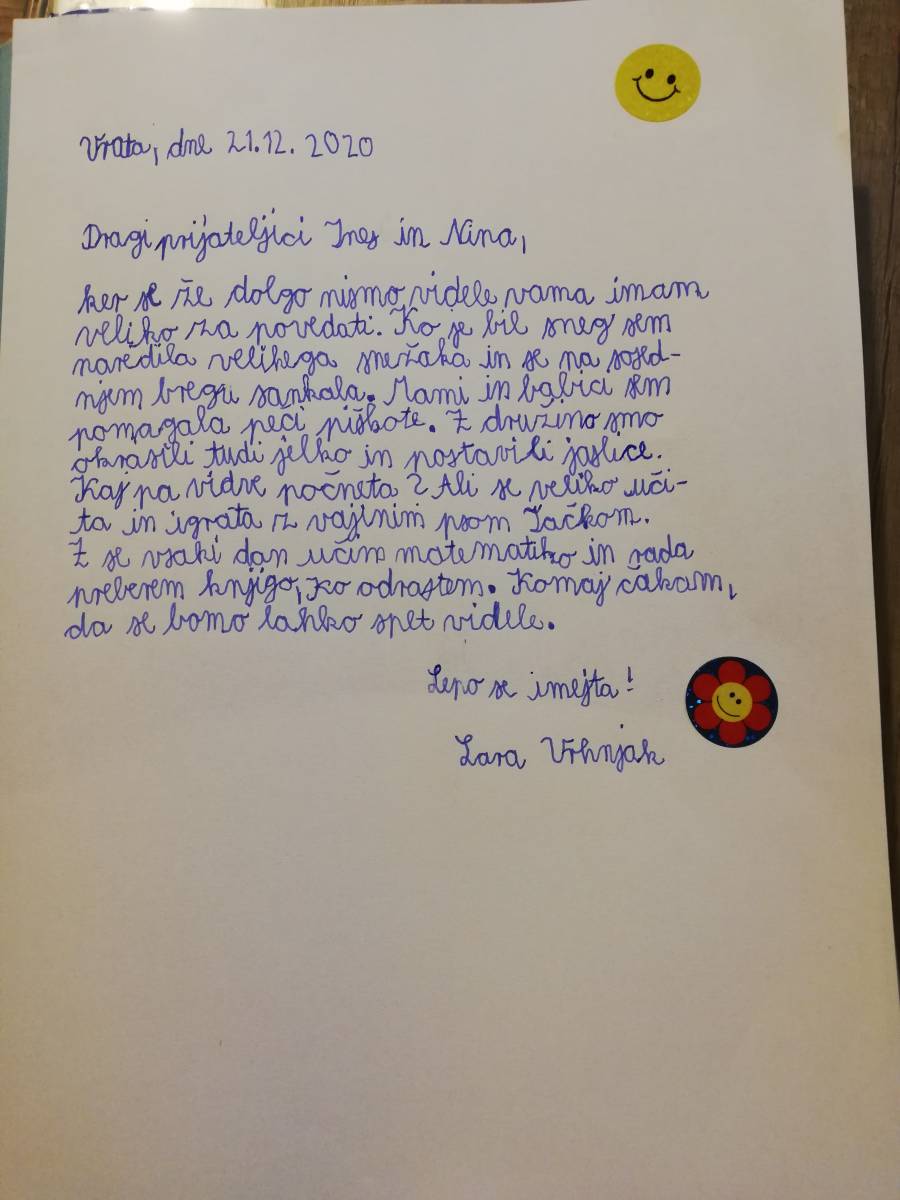 Vrata, dne 21.12. 2020
Dragi prijateljici Ines in Nina,
ker se že dolgo nismo videle vama imam
veliko za povedati. Ko je bil sneg sem
naredila velikega snežaka in se na sosed-
njem bregu sankala. Mami in babici sem
pomagala peči piškote. Z družino smo
okrasili tudi jelko in postavili jaslice.
Kaj pa vidve počneta? Ali se veliko uči-
ta in igrata z vajinim psom Tačkom.
Z se vsaki dan učim matematiko in rada
preberem knjigo, ko odrastem. Komaj čakam,
da se bomo lahko spet videle.
Lepo se imejta!
Lara Vrhnjak